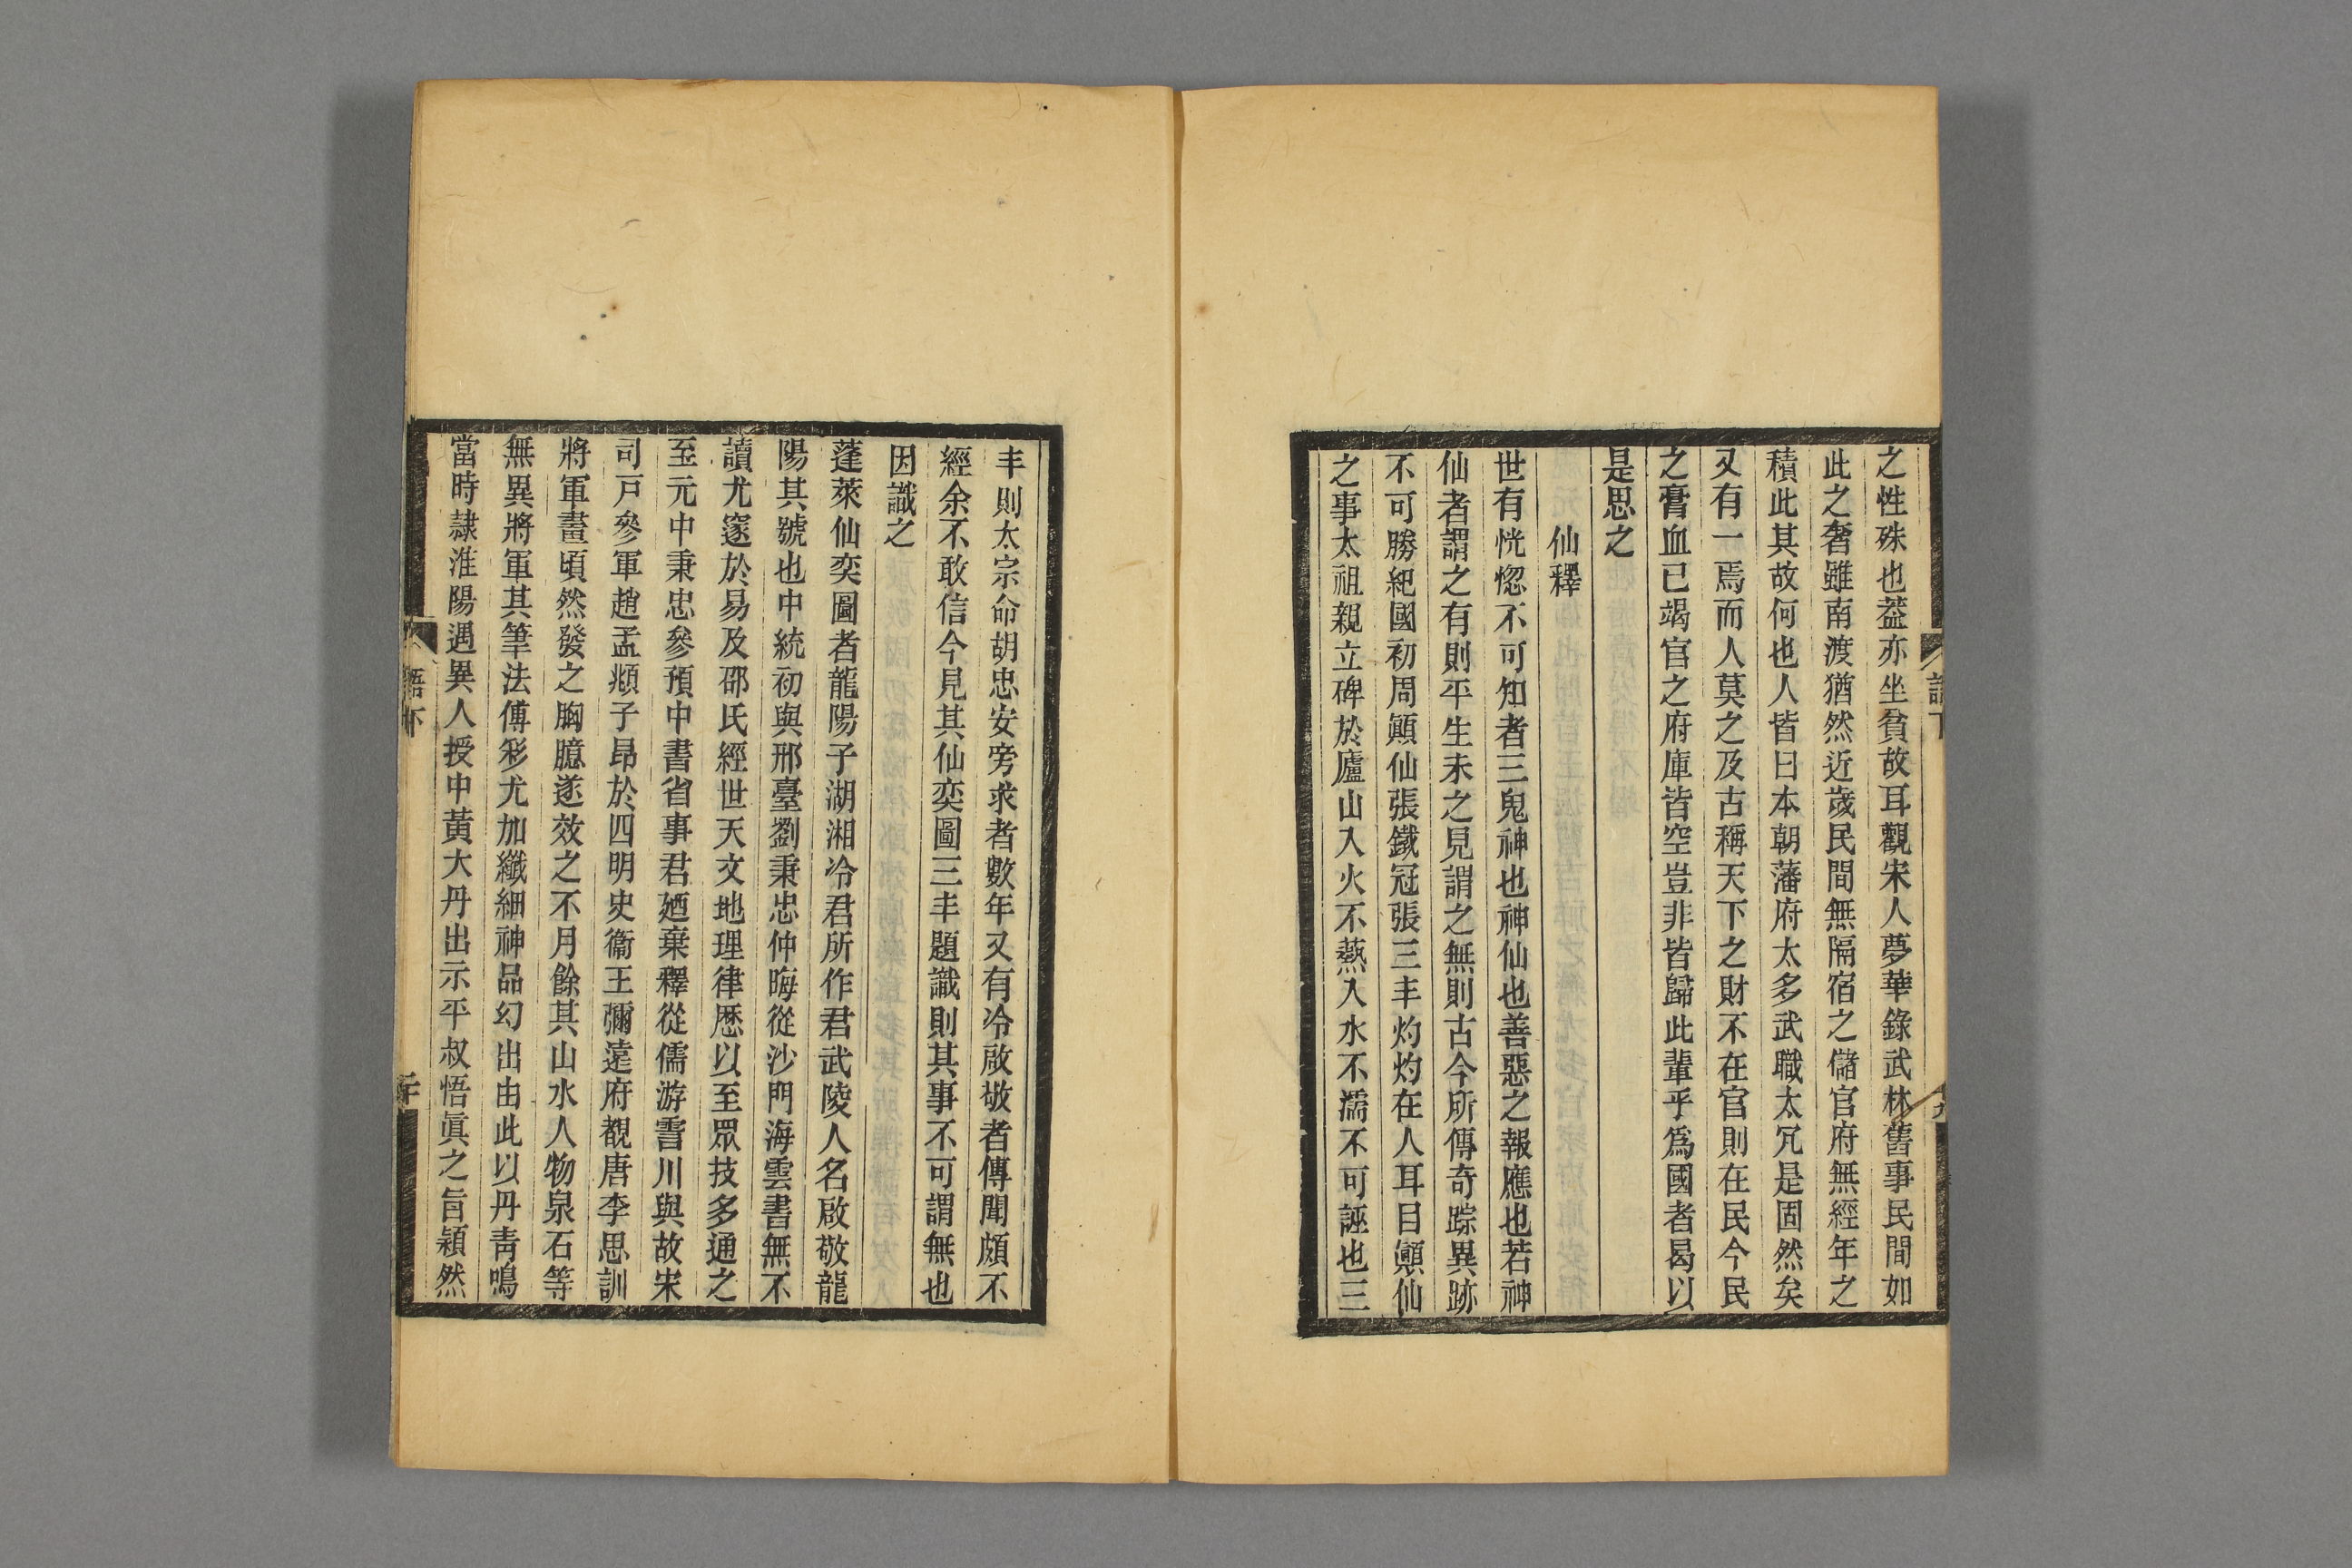 之性殊也葢亦坐貧故耳觀宋人夢華錄武林舊事民間如
此之奢雖南渡猶然近歲民間無隔宿之儲官府無經年之
積此其故何也人皆曰本朝藩府太多武職太冗是固然矣
又有一焉而人莫之及古稱天下之財不在官則在民今民
之膏血已竭官之府庫皆空豈非皆歸此輩乎爲國者曷以
是思之
仙釋
世有恍惚不可知者三鬼神也神仙也善惡之報應也若神
仙者謂之有則平生未之見謂之無則古今所傳奇踪異跡
不可勝紀國初周顚仙張鐵冠張三丰灼灼在人耳目顚仙
之事太祖親立碑於廬山入火不爇入水不濡不可誣也三
丰則太宗命胡忠安旁求者數年又有冷啟敬者傳聞頗不
經余不敢信今見其仙奕圖三丰題識則其事不可謂無也
因識之
蓬萊仙奕圖者龍陽子湖湘冷君所作君武陵人名啟敬龍
陽其號也中統初與邢臺劉秉忠仲晦從沙門海雲書無不
讀尤邃於易及邵氏經世天文地理律歷以至眾技多通之
至元中秉忠參預中書省事君廼棄釋從儒游霅川與故宋
司戸參軍趙孟頫子昂於四明史衞王彌遠府覩唐李思訓
將軍畫頃然發之胸臆遂效之不月餘其山水人物泉石等
無異將軍其筆法傅彩尤加纖細神品幻出由此以丹靑鳴
當時隷淮陽遇異人授中黃大丹出示平叔悟眞之旨穎然
語下